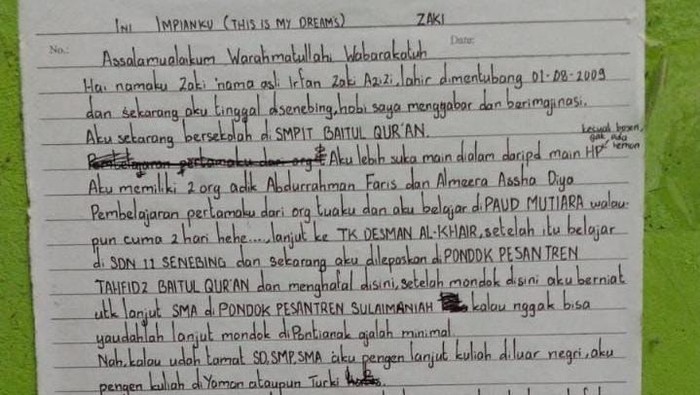 INI IMPIANKU (THIS IS MY DREAMS) ZAKI
No.: Date:
Assalamualaikum Warahmatullahi Wabarakatuh
Hai namaku Zaki nama asli Irfan Zaki Azizi, lahir dimentubang 01-08-2009
dan sekarang aku tinggal disenebing, hobi saya menggabar dan berimajinasi.
Aku sekarang bersekolah di SMPIT BAITUL QUR'AN.
kecuali bosen,
gak ada
teman
Aku lebih suka main dialam daripd main HP
Aku memiliki 2 org adik Abdurrahman Faris dan Almeera Assha Diya
Pembelajaran pertamaku dari org tuaku dan aku belajar di PAUD MUTIARA walau-
pun cuma 2 hari hehe...., lanjut ke TK DESMAN AL-KHAIR, setelah itu belajar
di SDN 11 SENEBING dan sekarang aku dilepaskan di PONDOK PESANTREN
TAHFIDZ BAITUL QUR'AN dan menghafal disini, setelah mondok disini aku berniat
utk lanjut SMA di PONDOK PESANTREN SULAIMANIAH kalau nggak bisa
yaudahlah lanjut mondok di Pontianak ajalah minimal
Nah, kalau udah tamat SD, SMP, SMA aku pengen lanjut kuliah diluar negri, aku
pengen kuliah di Yaman ataupun Turki